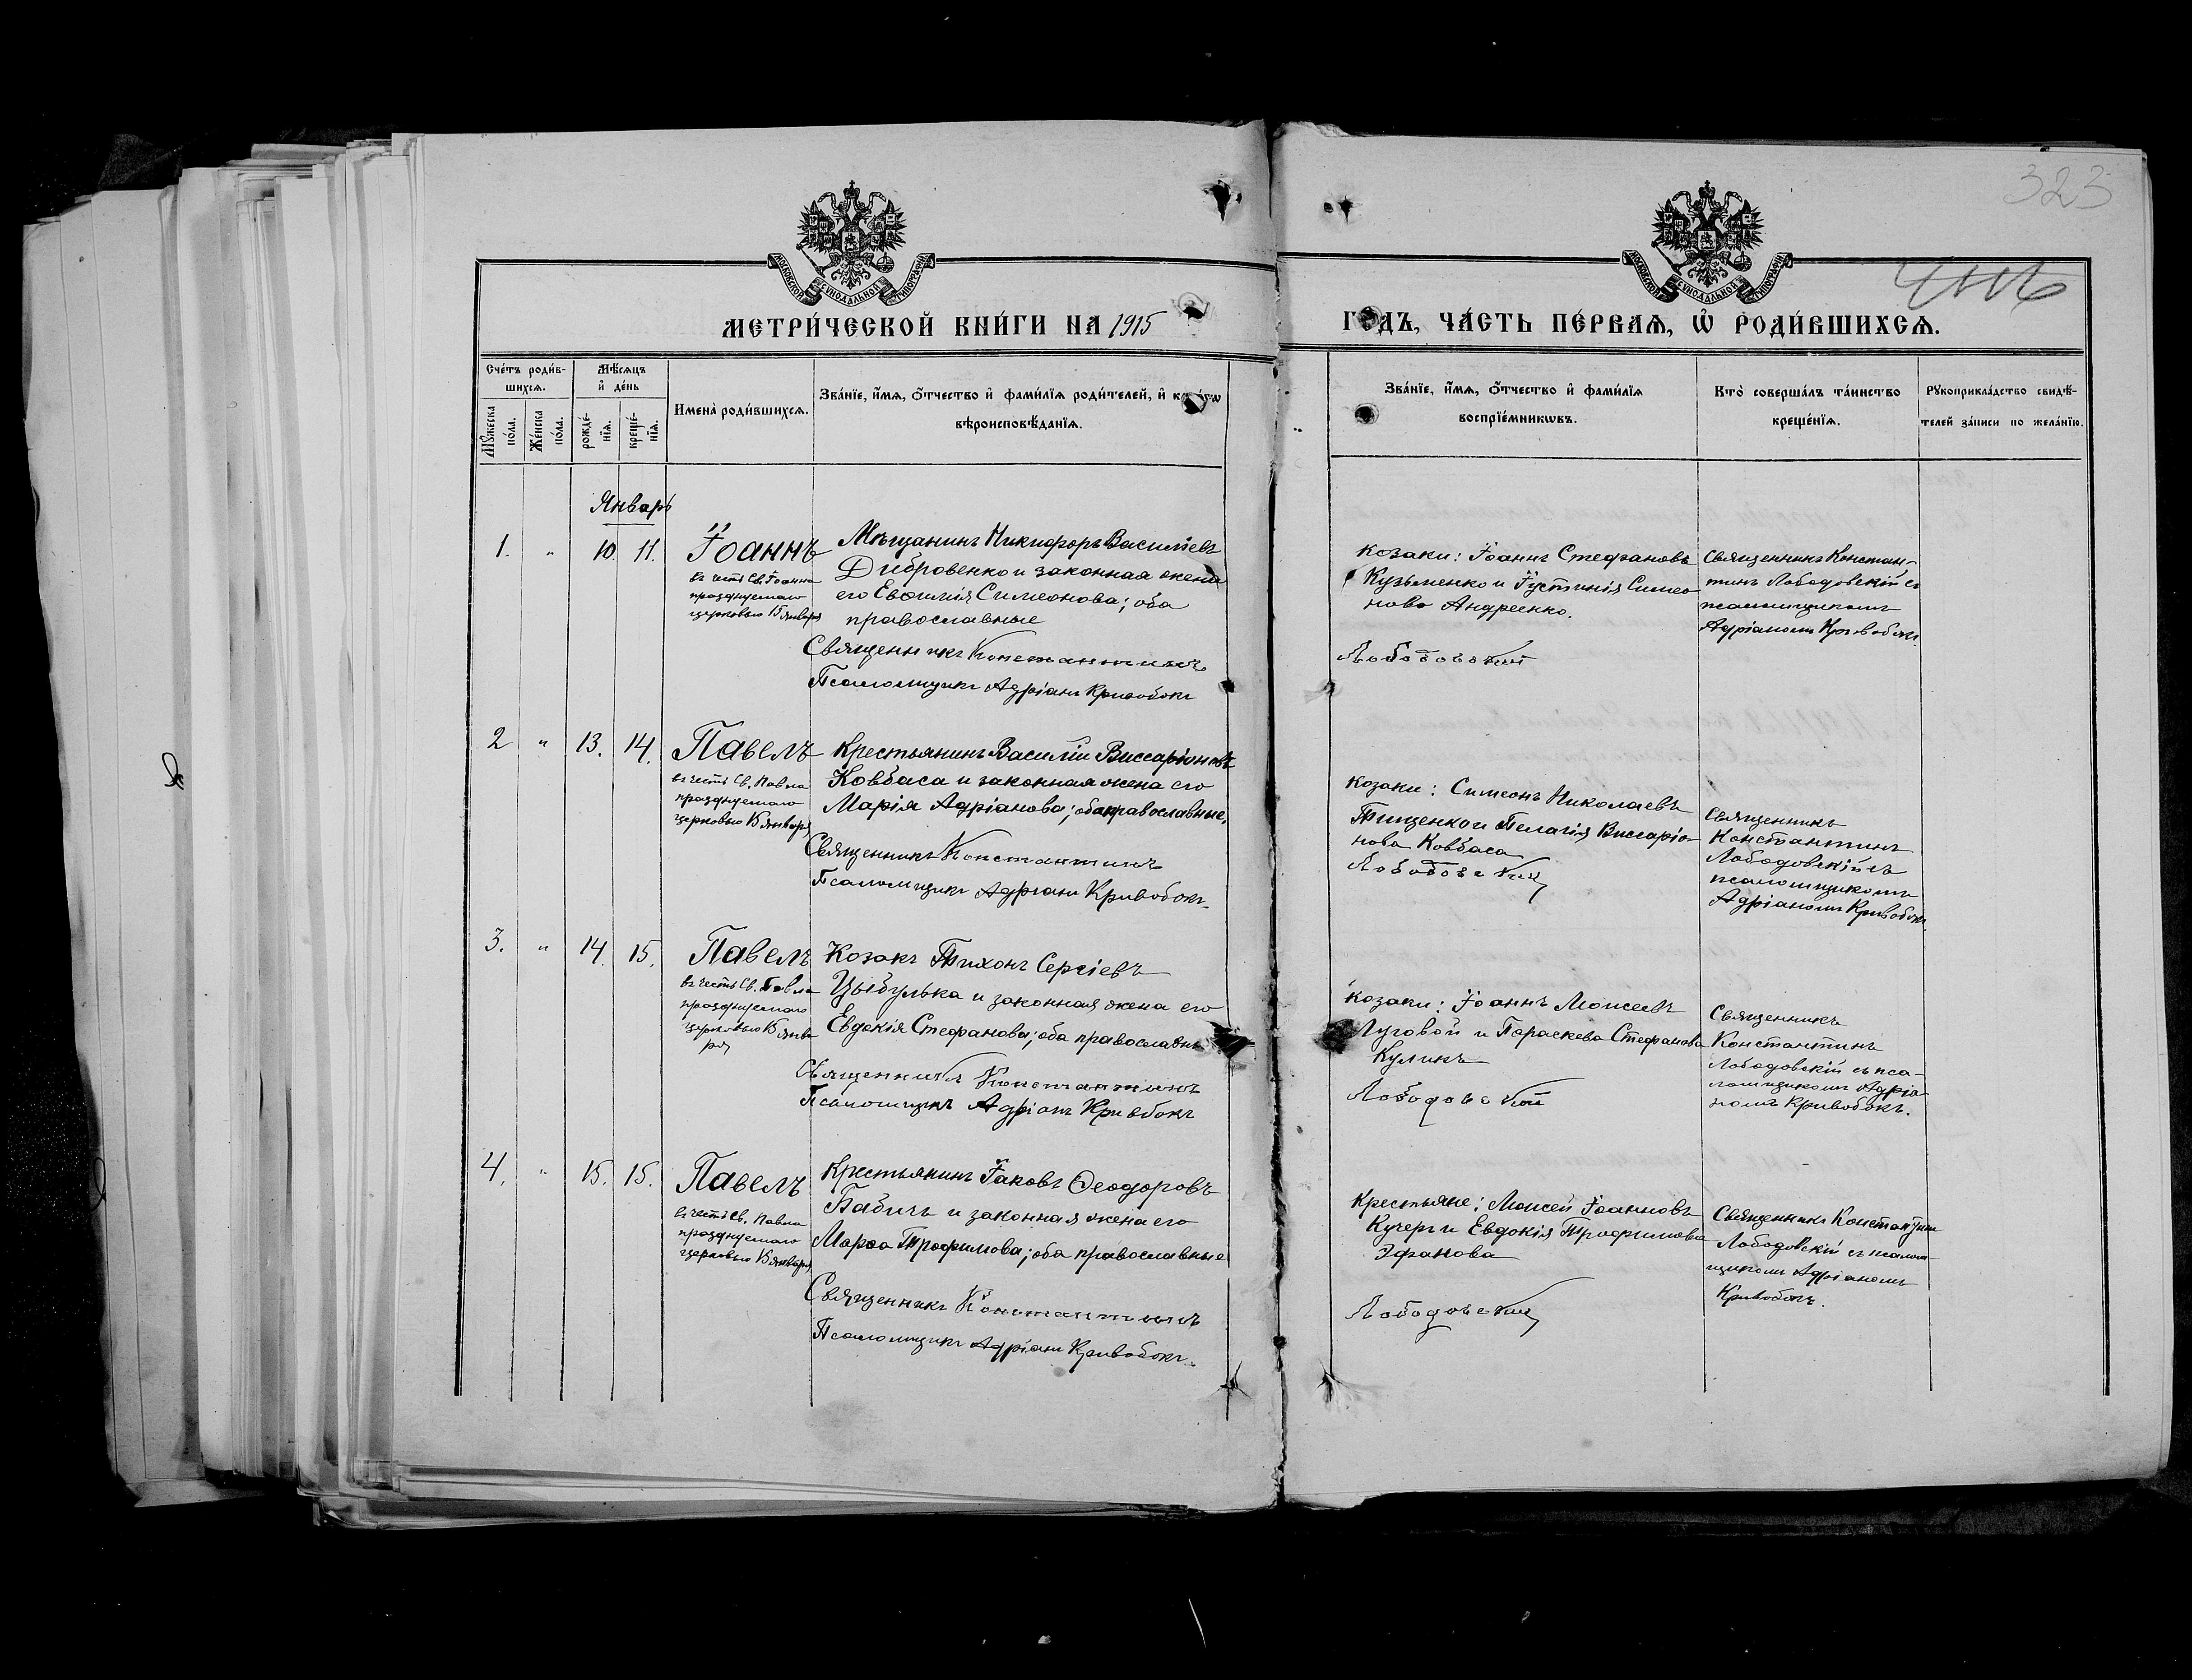 323
МОСКОВСКОЙ СУНОДАЛЬНОЙ ТИПОГРАФІИ
МОСКОВСКОЙ СУНОДАЛЬНОЙ ТИПОГРАФІИ
МЕТРИ́ЧЕСКОЙ КНИ́ГИ НА 1915
ГОДЪ, ЧА́СТЬ ПЕ́РВАѦ, Ѡ҆ РОДИ́ВШИХСѦ.
Сче́тъ роди́в-
шихсѧ.
Мꙋ́жеска по́ла.
Же́нска по́ла.
Мѣ́сѧцъ
и҆ де́нь
рожде́-нїѧ.
креще́-нїѧ.
Имена̀ роди́вшихсѧ.
Зва́нїе, и҆́мѧ, о҆́тчество и҆ фами́лїѧ роди́телей, и҆ како́гѡ
вѣроисповѣ́данїѧ.
Зва́нїе, и҆́мѧ, о҆́тчество и҆ фами́лїѧ
воспрїе́мникѡвъ.
Кто̀ соверша́лъ та́инство
креще́нїѧ.
Рꙋкоприкла́дство свидѣ́-
телей за́писи по жела́нїю.
Январь
1. " 10. 11. Іоаннъ
въ честь Св. Іоанна
празднуемаго
церковью 15 января
Мѣщанинъ Никифоръ Васильевъ
Дибровенко и законная жена
его Евѳимія Симеонова; оба
православные
Священникъ Константинъ
Псаломщикъ Адріанъ Кривобокъ
Козаки: Іоаннъ Стефановъ
Кузьменко и Іустинія Симео
нова Андреенко.
Лободовскій
Священникъ Констан-
тинъ Лободовскій съ
псаломщикомъ
Адріаномъ Кривобокъ
2 " 13. 14. Павелъ
въ честь Св. Павла
празднуемаго
церковью 15 января
Крестьянинъ Василій Виссаріоновъ
Ковбаса и законная жена его
Марія Адріанова; оба православные.
Священникъ Константинъ
Псаломщикъ Адріанъ Кривобокъ.
Козаки: Симеонъ Николаевъ
Тищенко и Пелагія Виссаріо
нова Ковбаса
Лободовскій
Священникъ
Константинъ
Лободовскій съ
псаломщикомъ
Адріаномъ Кривобокъ
3. " 14. 15. Павелъ
въ честь Св. Павла
празднуемаго
церковью 15 янва
ря
Козакъ Тихонъ Сергіевъ
Цыбулька и законная жена его
Евдокія Стефанова; оба православны
Священникъ Константинъ
Псаломщикъ Адріанъ Кривбокъ
Козаки: Іоаннъ Моисеевъ
Луговой и Параскева Стефанова
Куликъ
Лободовскій
Священникъ
Константинъ
Лободовскій съ пса-
ломщикомъ Адріа-
номъ Кривобокъ.
4. " 15. 15. Павелъ
въ честь Св. Павла
празднуемаго
церковью 15 января
Крестьянинъ Іаковъ Ѳеодоровъ
Бабичъ и законная жена его
Марѳа Трофимова; оба православные
Священникъ Константинъ
Псаломщикъ Адріанъ Кривобокъ.
Крестьяне: Моисей Іоанновъ
Кучеръ и Евдокія Трофимова
Лободовскій
Священникъ Константинъ
Лободовскій съ псалом-
щикомъ Адріаномъ
Кривобокъ.